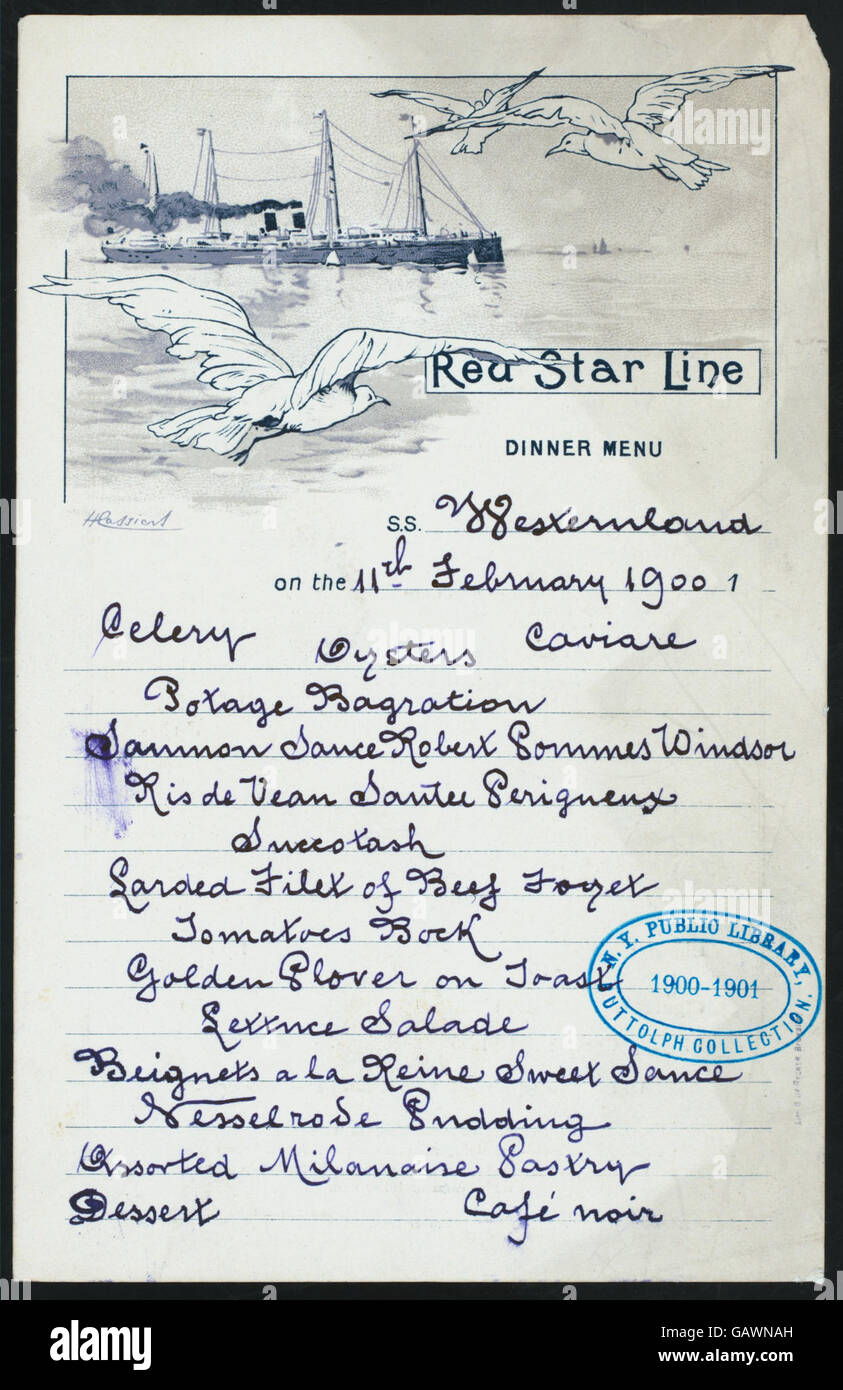 Red Star Line
DINNER MENU
H Cassiers
S.S. Westernland
on the 11th February 1900 1
Celery Oysters Caviare
Potage Bagration
Sammon Sauce Robert Pommes Windsor
Ris de Veau Sautee Perigueux
Succotash
Larded Filet of Beef Foyet
Tomatoes Bock
Golden Plover on Toast
Lettuce Salade
Beignets a la Reine Sweet Sauce
Nesselrode Pudding
Assorted Milanaise Pastry
Dessert Café noir
N.Y. PUBLIC LIBRARY,
1900-1901
BUTTOLPH COLLECTION.
alamy
alamy stock photo
GAWNAH
www.alamy.com